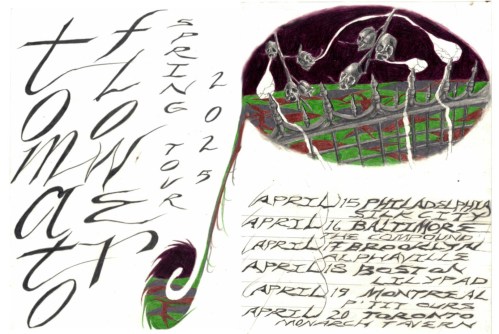 tomato
flower
SPRING TOUR
2025
(APRIL) 15 PHILADELPHIA
SILK CITY
(APRIL) 16 BALTIMORE
THE COMPOUND
(APRIL) 17 BROOKLYN
ALPHAVILLE
(APRIL) 18 BOSTON
LILYPAD
(APRIL) 19 MONTREAL
P'TIT OURS
(APRIL) 20 TORONTO
MONARCH TAVERN